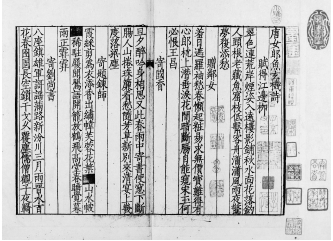 唐女郎魚玄機詩
賦得江邊柳
翠色連荒岸煙姿入遠樓影鋪秋水面花落釣
人頭根老藏魚窟枝低繫客舟蕭蕭風雨夜驚
夢復添愁
贈鄰女
羞日遮羅袖愁春懶起粧易求無價寶難得有
心郎枕上潛垂淚花間暗斷腸自能窺宋玉何
必恨王昌
寄國香
旦夕醉吟身相思又此春雨中寄書使窗下斷
腸人山捲珠簾看愁隨芳草新別來清宴上幾
度落梁塵
寄題鍊師
霞綵剪為衣添香出繡幃芙蓉花葉 山水帔
稀駐履聞鶯語開籠放鶴飛高堂春睡覺暮
雨正霏霏
寄劉尚書
八座鎮雄軍歌謠滿路新汾川三月雨晉水百
花春囹圄長空鎖干戈久覆塵儒僧觀子夜羈